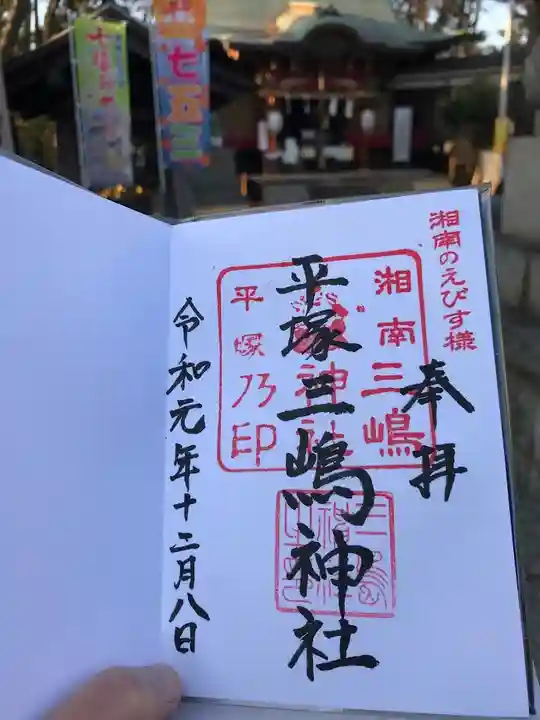 湘南のえびす様
奉拝
平塚三嶋神社
令和元年十二月八日
湘南三嶋
神社
平塚乃印
七五三